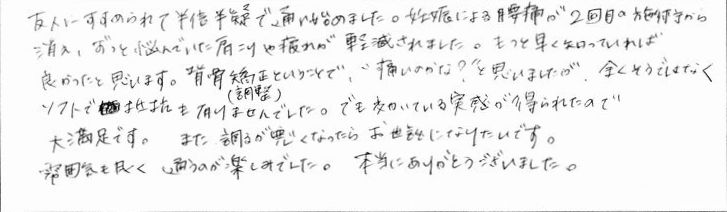 友人にすすめられて半信半疑で通い始めました。妊娠による腰痛が2回目の施術から
消え、ずっと悩んでいた肩こりや疲れが軽減されました。もっと早く知っていれば
良かったと思います。背骨矯正ということで、“痛いのかな?”と思いましたが、全くそうではなく
(調整)
ソフトで抵抗も有りませんでした。でも効いている実感が得られたので
大満足です。また調子が悪くなったらお世話になりたいです。
雰囲気も良く通うのが楽しみでした。本当にありがとうございました。